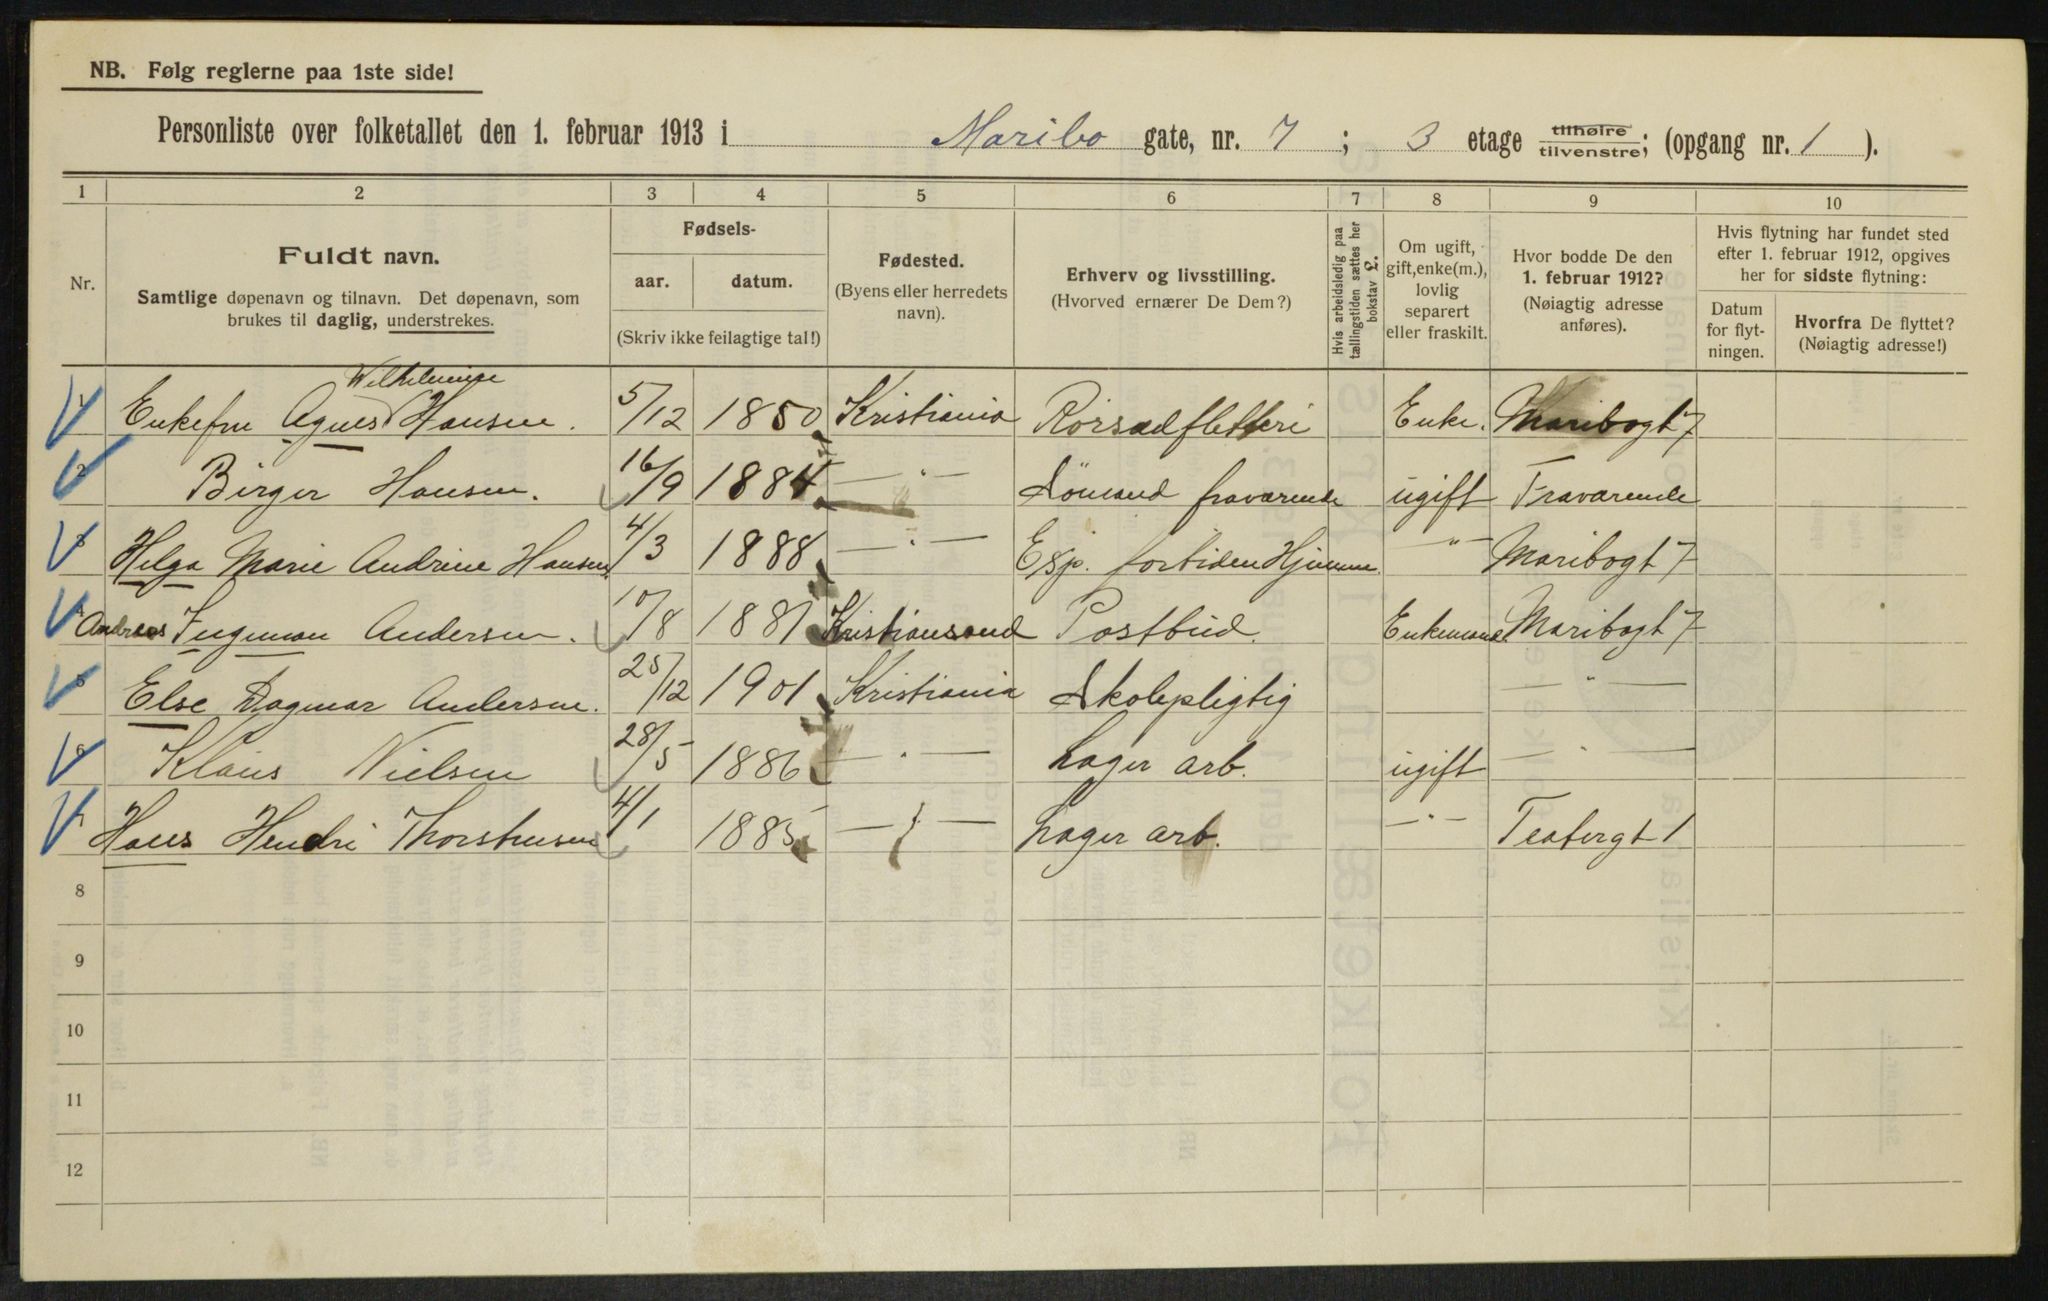 NB. Følg reglerne paa 1ste side!
Personliste over folketallet den 1. februar 1913 i Maribo gate, nr. 7 ; 3 etage tilhøire tilvenstre; (opgang nr. 1 ).
1 2 3 4 5 6 7 8 9 10
Nr.
Fuldt navn.
Samtlige døpenavn og tilnavn. Det døpenavn, som
brukes til daglig, understrekes.
Fødsels-
aar. datum.
(Skriv ikke feilagtige tal!)
Fødested.
(Byens eller herredets
navn).
Erhverv og livsstilling.
(Hvorved ernærer De Dem?)
Hvis arbeidsledig paa
tællingstiden sættes her
bokstav L.
Om ugift,
gift, enke(m.),
lovlig
separert
eller fraskilt.
Hvor bodde De den
1. februar 1912?
(Nøiagtig adresse
anføres).
Hvis flytning har fundet sted
efter 1. februar 1912, opgives
her for sidste flytning:
Datum
for flyt-
ningen.
Hvorfra De flyttet?
(Nøiagtig adresse!)
Wilhelmine
1 Enkefru Agnes Hansen. 5/12 1850 Kristiania Rörsadfletteri Enke. Maribogt 7
2 Birger Hansen. 16/9 1884 — " — Sömand fraværende ugift Fraværende
3 Helga Marie Andrine Hansen 4/3 1888 — " — Exp. fortiden Hjemme. — " — Maribogt 7
4 Andreas Ingman Andersen. 10/8 1881 Kristiansand Postbud. Enkemand Maribogt 7
5 Else Dagmar Andersen. 25/12 1901 Kristiania Skolepligtig — " —
6 Klaus Nielsen 28/5 1886 — " — Lager arb. ugift — " —
7 Hans Hendri Thorstensen 4/1 1885 — " — Lager arb. — " — Teatergt 1
8
9
10
11
12